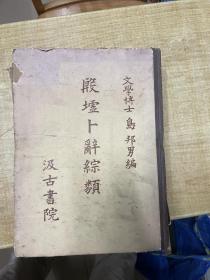 文學博士 島邦男編
殷墟卜辭綜類
汲古書院